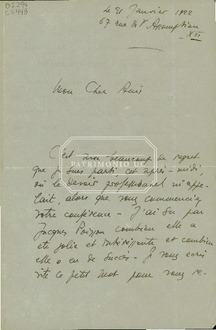 le 31 Janvier 1922
67 rue de l'Assomption
XVIe
Mon Cher Ami
C'est avec beaucoup de regret
que je suis parti cet après-midi,
où le devoir professionnel m'appe-
lait, alors que vous commenciez
votre conférence - J'ai su par
Jacques combien elle a
été jolie et intéressante et combien
elle a eu de succès - Je vous écris
vite ce petit mot pour vous re-